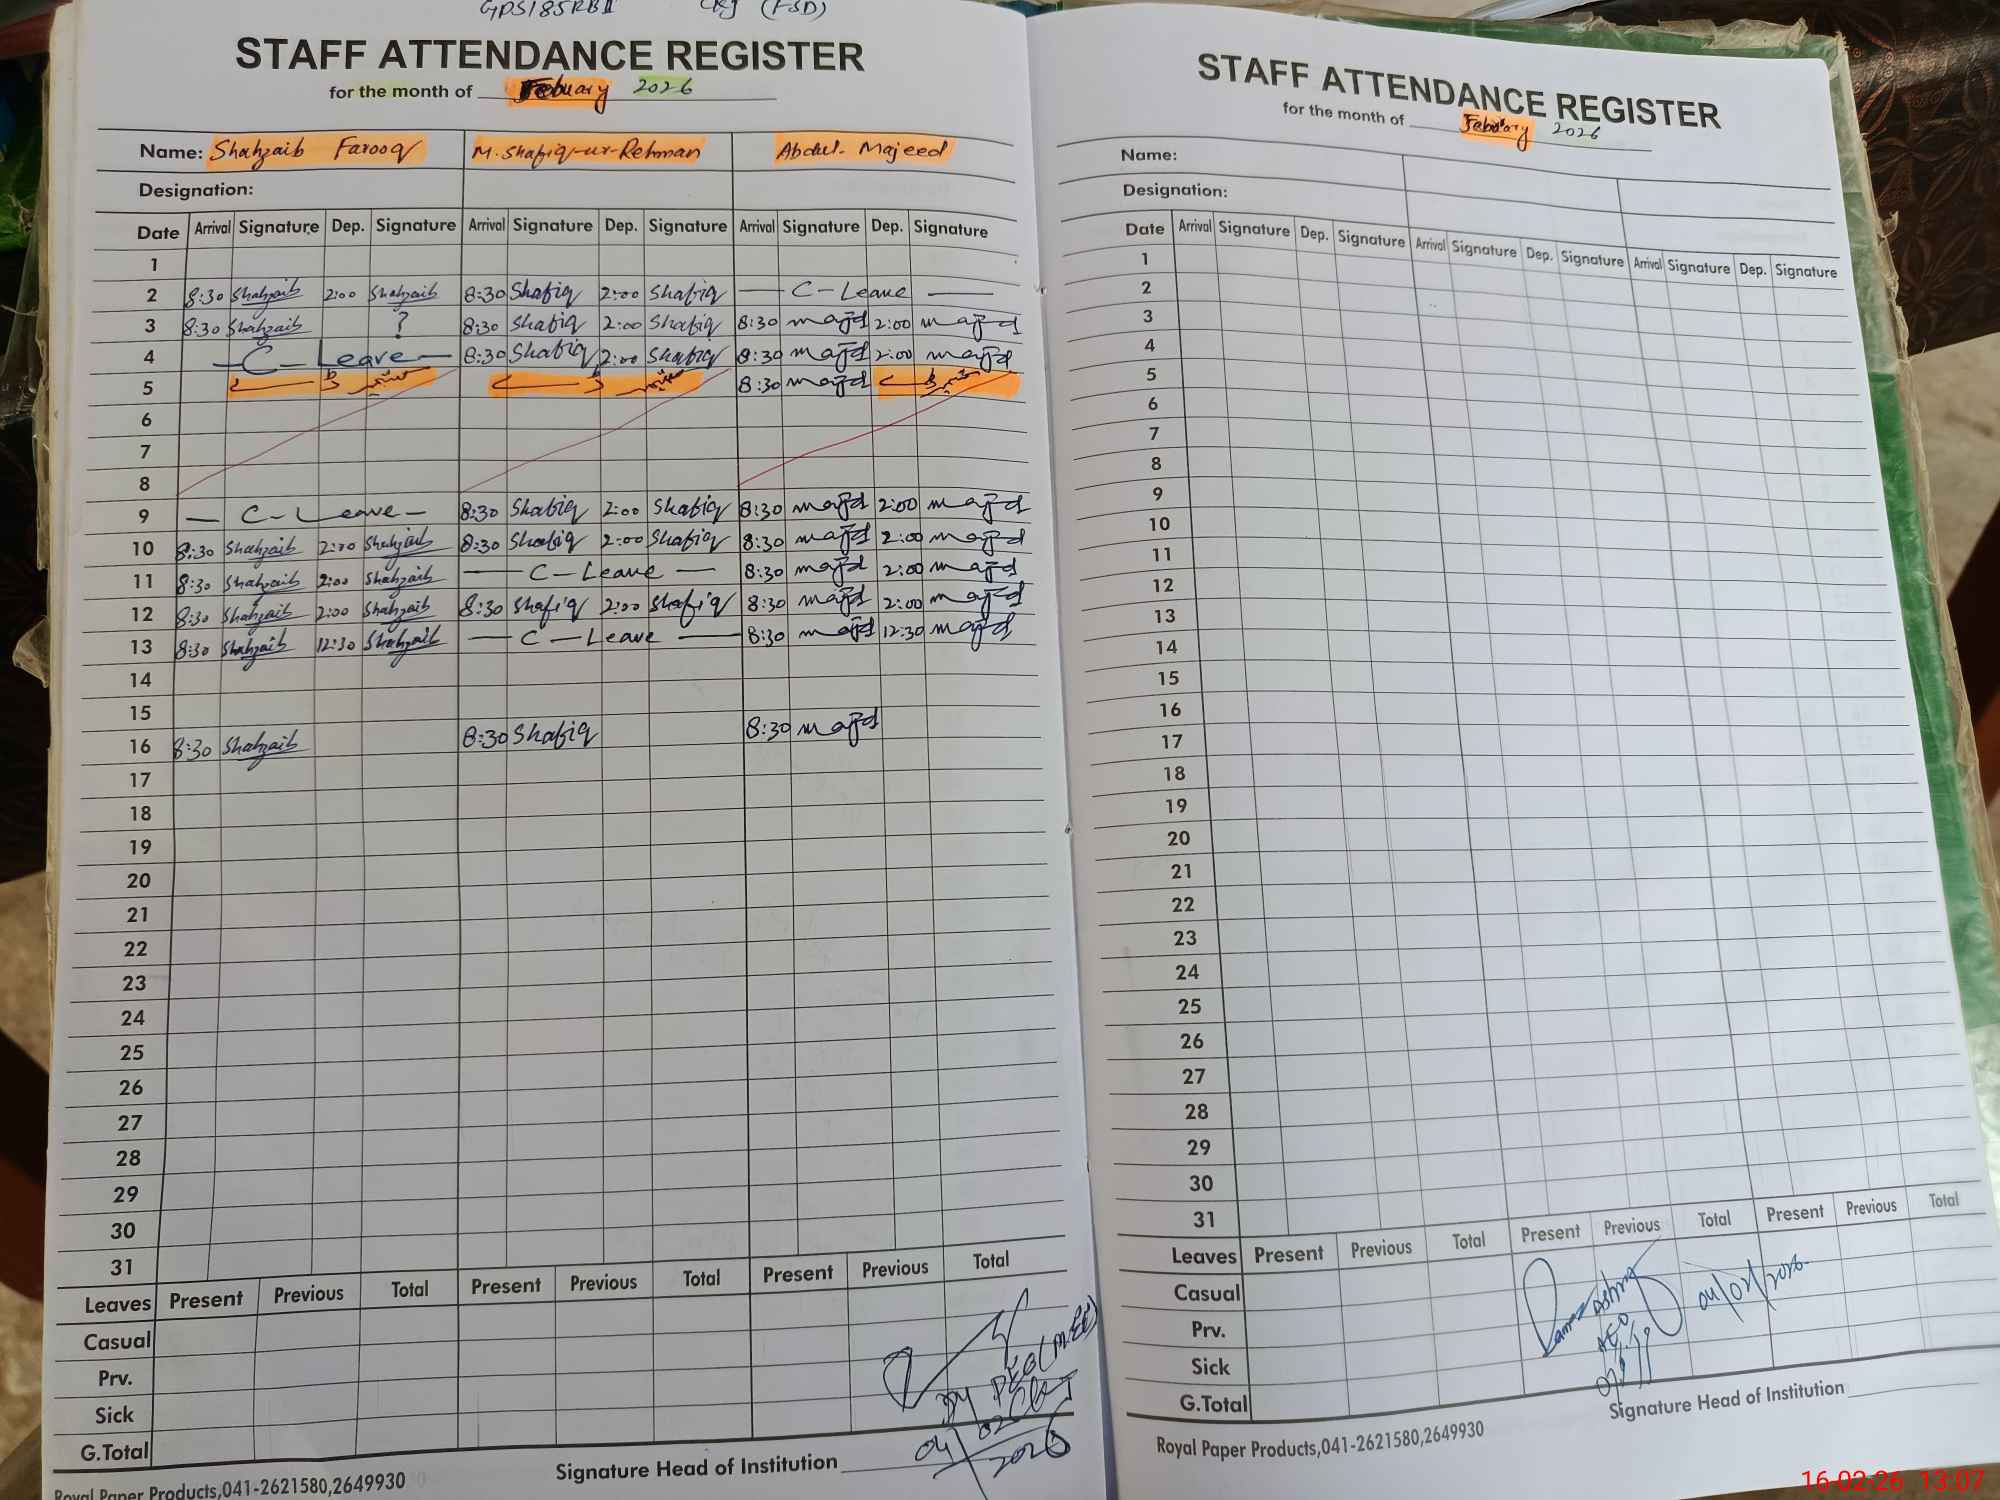 GPS 185 RB II
(FSD)
STAFF ATTENDANCE REGISTER
for the month of Febuary 2026
Name: Shahzaib Farooq M. Shafiq-ur-Rehman Abdul. Majeed
Designation:
Date Arrival Signature Dep. Signature Arrival Signature Dep. Signature Arrival Signature Dep. Signature
1
2 8:30 Shahzaib 2:00 Shahzaib 8:30 Shafiq 2:00 Shafiq — C - Leave —
3 8:30 Shahzaib ? 8:30 Shafiq 2:00 Shafiq 8:30 majd 2:00 majd
4 — C - Leave — 8:30 Shafiq 2:00 Shafiq 8:30 majd 2:00 majd
5 8:30 majd
6
7
8
9 — C - Leave — 8:30 Shafiq 2:00 Shafiq 8:30 majd 2:00 majd
10 8:30 Shahzaib 2:00 Shahzaib 8:30 Shafiq 2:00 Shafiq 8:30 majd 2:00 majd
11 8:30 Shahzaib 2:00 Shahzaib — C - Leave — 8:30 majd 2:00 majd
12 8:30 Shahzaib 2:00 Shahzaib 8:30 Shafiq 2:00 Shafiq 8:30 majd 2:00 majd
13 8:30 Shahzaib 12:30 Shahzaib — C - Leave — 8:30 majd 12:30 majd
14
15
16 8:30 Shahzaib 8:30 Shafiq 8:30 majd
17
18
19
20
21
22
23
24
25
26
27
28
29
30
31
Leaves Present Previous Total Present Previous Total Present Previous Total
Casual
Prv.
Sick
G.Total
04/02/2026
Signature Head of Institution
Royal Paper Products,041-2621580,2649930
STAFF ATTENDANCE REGISTER
for the month of February 2026
Name:
Designation:
Date Arrival Signature Dep. Signature Arrival Signature Dep. Signature Arrival Signature Dep. Signature
1
2
3
4
5
6
7
8
9
10
11
12
13
14
15
16
17
18
19
20
21
22
23
24
25
26
27
28
29
30
31
Leaves Present Previous Total Present Previous Total Present Previous Total
Casual
Prv.
Sick
G.Total
AEO
04/02/2026
Signature Head of Institution
Royal Paper Products,041-2621580,2649930
16-02-26 13:07